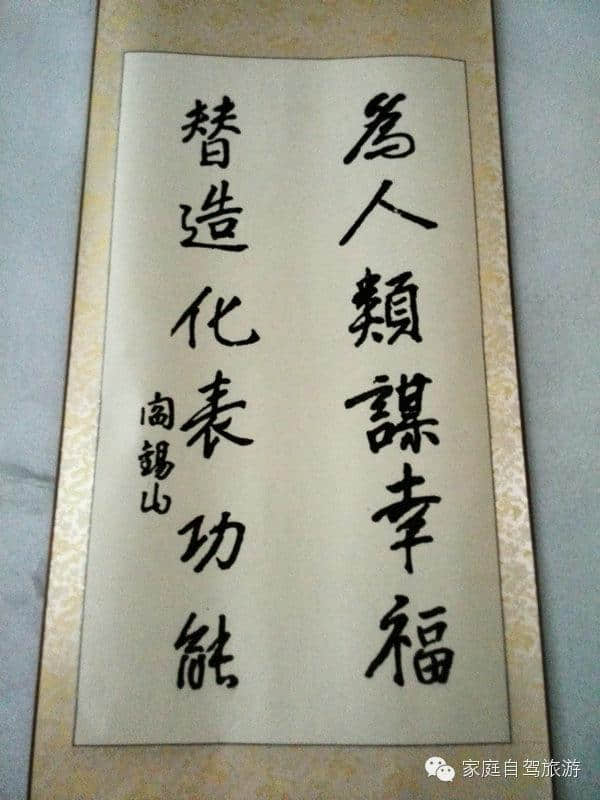 為人類謀幸福
替造化表功能
閻錫山
家庭自驾旅游